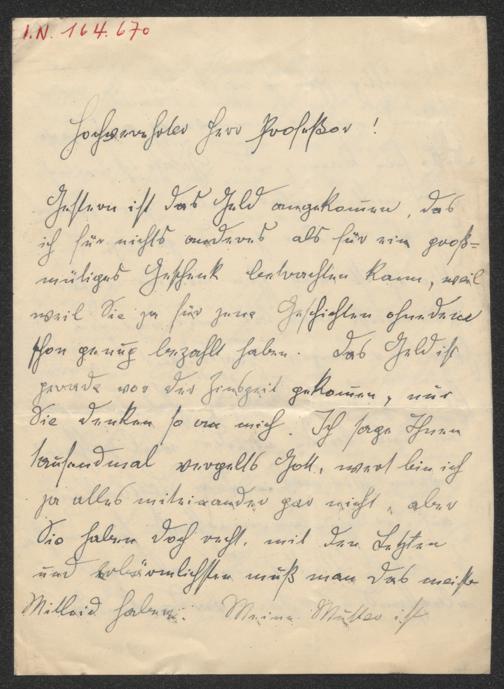 I.N. 164.670
Hochverehrter Herr Profeßor!
Gestern ist das Geld angekommen, das
ich für nichts anderes als für ein groß=
mütiges Geschenk betrachten kann, weil
weil Sie ja für jene Geschichten ohnedem
schon genug bezahlt haben. Das Geld ist
gerade vor der Zinszeit gekommen, nur
Sie denken so an mich. Ich sage Ihnen
tausendmal vergelts Gott, wert bin ich
ja alles miteinander gar nicht, aber
Sie haben doch recht, mit den Letzten
und erbärmlichsten muß man das meiste
Mitleid haben. Meine Mutter ist